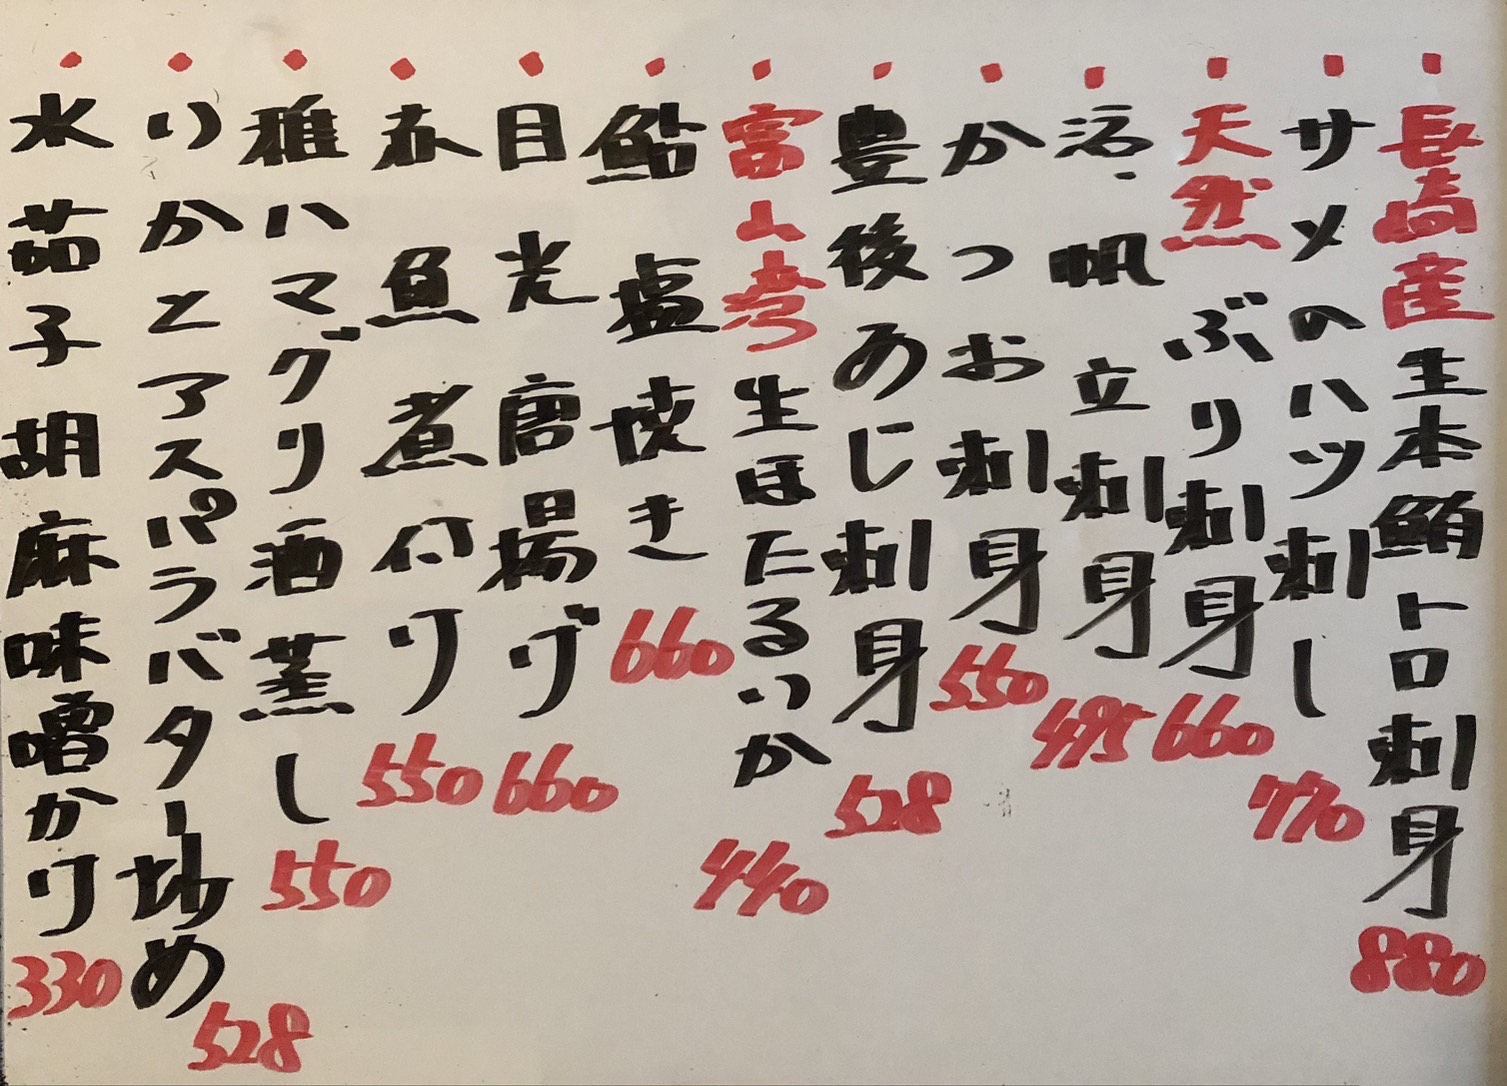 ・長崎産生本鮪トロ刺身 880
・サメのハツ刺し 770
・天然ぶり刺身 660
・活帆立刺身 495
・かつお刺身 550
・豊後あじ刺身 528
・富山湾生ほたるいか 440
・鮎塩焼き 660
・目光唐揚げ 660
・赤魚煮付け 550
・稚ハマグリ酒蒸し 550
・いかとアスパラバター炒め 528
・水茄子胡麻味噌かけ 330